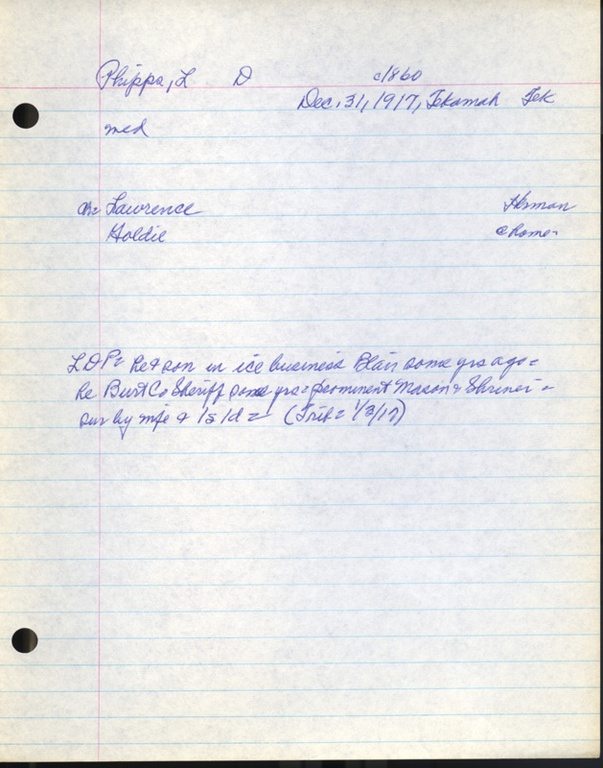 Phipps, L D c1860
Dec. 31, 1917, Tekamah Tek
med
ch= Lawrence Herman
Goldie @home-
LDP= he & son in ice business Blair some yrs ago=
he Burt Co Sheriff some yrs= prominent Mason & Shriner=
sur by wife & 1s 1d= (Trib= 1/3/17)